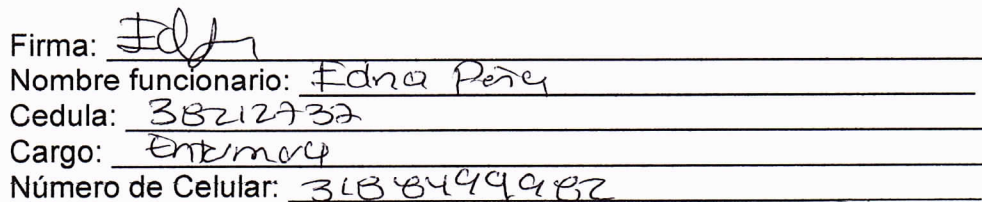 Firma:
Nombre funcionario: Edna Peña
Cedula: 38212737
Cargo: Enfermera
Número de Celular: 3188499982